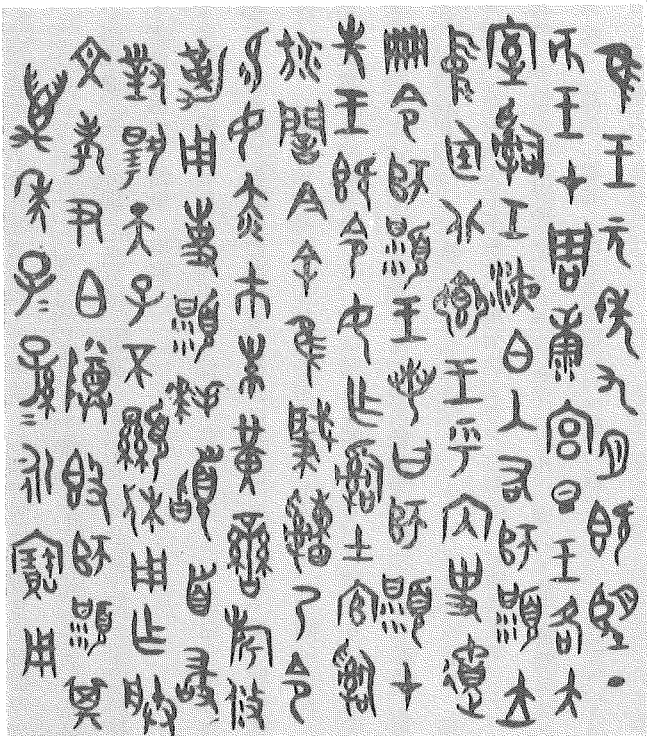 隹王元年九月既望丁
亥王才周康宮旦王各大
室嗣工液白入右師頮立
中廷北鄉王乎內史遣
冊令師王若曰師才
先王既令女乍嗣土官嗣
汸誾今余隹肇乃令
易女赤巿朱黃䜌旂攸
勒用事拜首敢
對揚天子不顯休用乍朕
文考尹白尊師其
萬年子=孫=永寶用